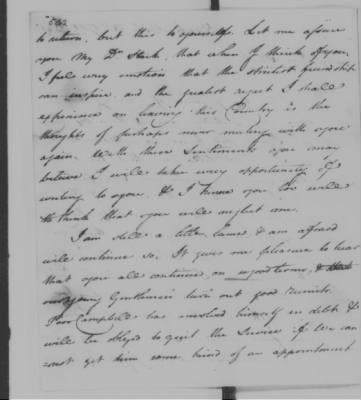 to return, but this to yourself. Let me assure
you My Dr. Stark, that when I think of you,
I feel every emotion that the strictest friendship
can inspire and the greatest regret I shall
experience on leaving this Country is the
thoughts of perhaps never meeting with you
again. With these Sentiments you may
believe I will take every opportunity of
writing to you, & I know you too well
to think that you will neglect me.
I am still a little lame & am afraid
will continue so. It gives me pleasure to hear
that you all continue on good terms, &
young Gentlemen turn out good
Poor Campbell has involved himself in debt &
will be obliged to quit the Service if We can
not get him some kind of an appointment